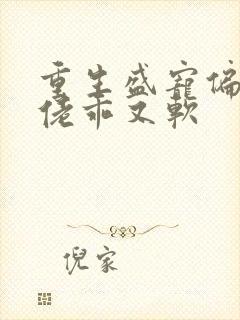 重生盛宠偏
佬乖又软
倪家